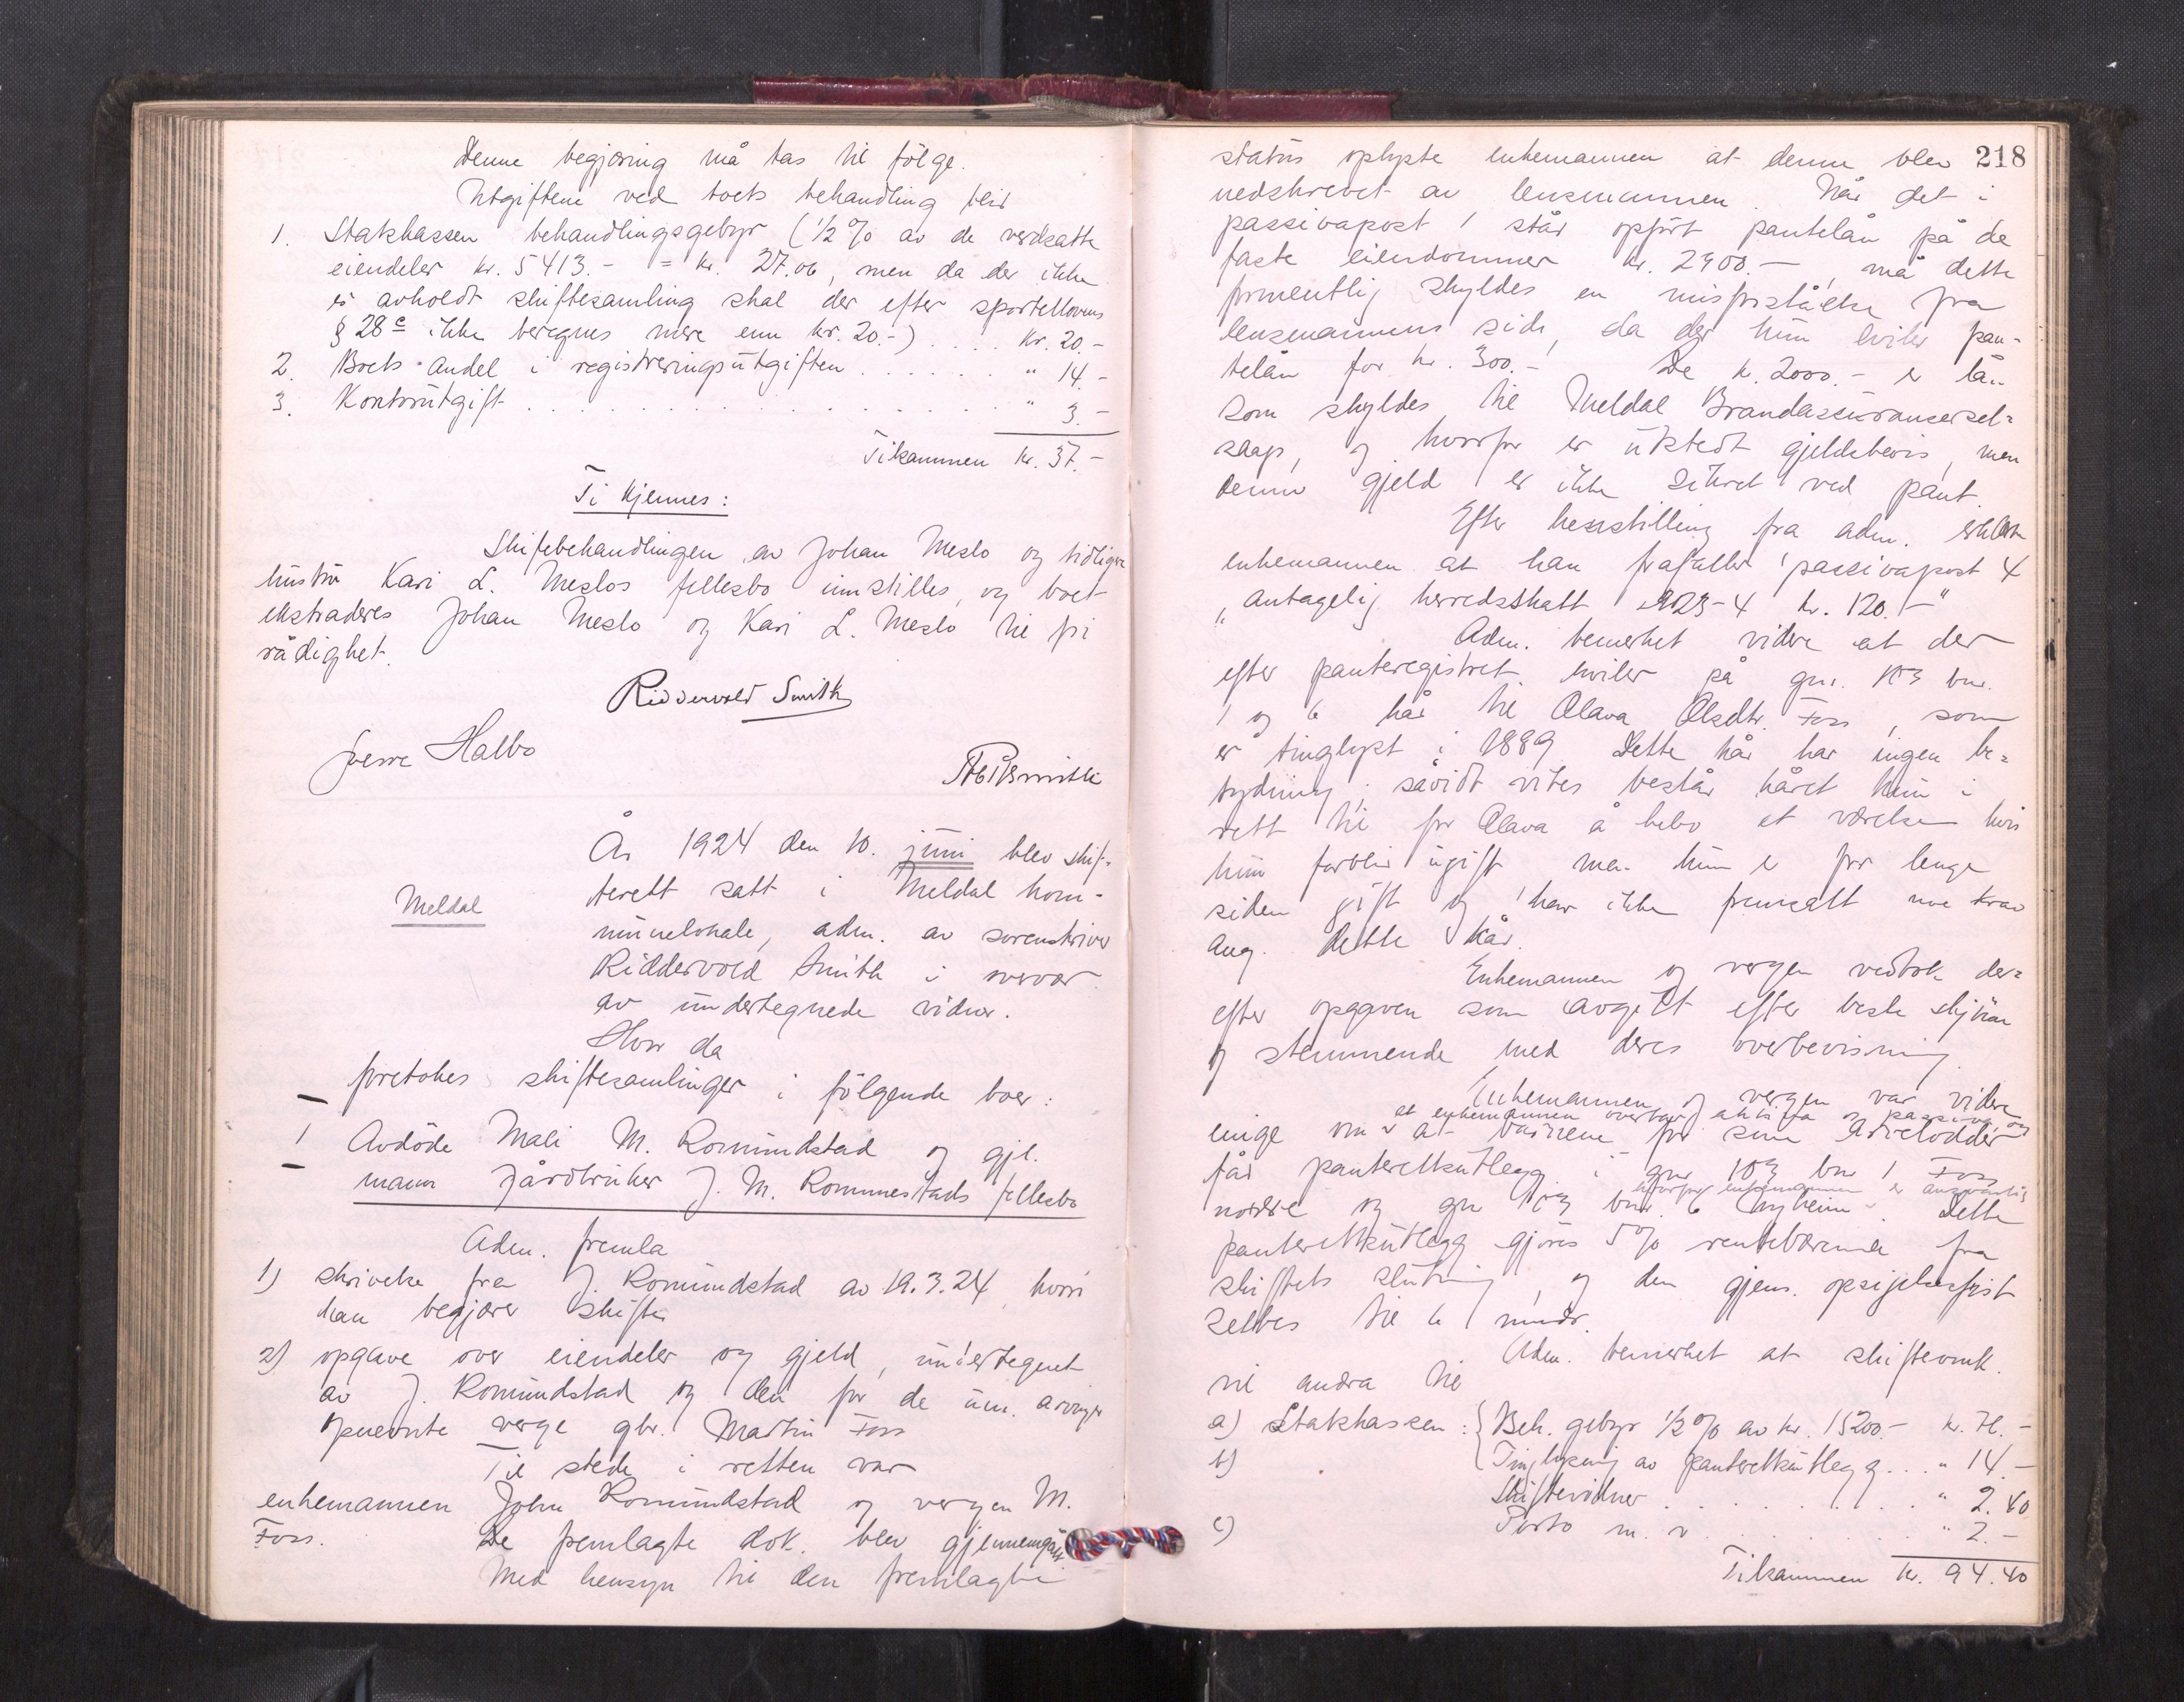 Denne begjæring må tas til följe.
Utgiftene ved boets behandling blir
1. Statskassen behandlingsgebyr (½ % av de verdsatte
eiendeler kr. 5413.- = kr. 27.06, men da der ikke
er avholdt skiftesamling skal der efter sportellovens
§ 28 c ikke beregnes mere enn kr. 20.-) .... kr. 20.-
2. Boets andel i registreringsutgiften ...... " 14.-
3. Kontorutgift .................... " 3.-
Tilsammen kr. 37.-
Ti kjennes:
Skiftebehandlingen av Johan Meslo og tidligere
hustru Kari L. Meslos fellesbo innstilles, og boet
ekstraderes Johan Meslo og Kari L. Meslo til fri
rådighet.
Riddervold Smith
Sverre Halbo
Meldal
År 1924 den 10. juni blev skif-
terett satt i Meldal kom-
munelokale, adm. av sorenskriver
Riddervold Smith i nærvær
av undertegnede vidner.
Hvor da
foretokes skiftesamlinger i fölgende boer:
1 Avdöde Mali M. Romundstad og gjl.
mann gårdbruker J. M. Romundstads fellesbo
Adm. fremla
1) skrivelse fra J. Romundstad av 19.3.24, hvori
han begjærer skifte
2) opgave over eiendeler og gjeld, undertegnet
av J. Romundstad og den for de um. arvinger
opnevnte verge gbr. Martin Foss
Til stede i retten var
enkemannen John Romundstad og vergen M.
Foss. De fremlagte dok. blev gjennemgått
Med hensyn til den fremlagte
218
status oplyste enkemannen at denne blev
nedskrevet av lensmannen. Når det i
passivapost 1 står opfört pantelån på de
faste eiendommer kr. 2900.-, må dette
formentlig skyldes en misforståelse fra
lensmannens side, da der kun hviler pan-
telån for kr. 300.- De kr. 2000.- er lån
som skyldes til Meldal Brandassuransesel-
skap, og hvorfor er utstedt gjeldsbevis, men
denne gjeld er ikke sikret ved pant.
Efter henstilling fra adm. erklærte
enkemannen at han frafaller passivapost 4
"antagelig herredsskatt 1923-4 kr. 120.-"
Adm. bemerket videre at der
efter panteregistret hviler på gnr. 103 bnr.
1 og 6 kår til Olava Olsdtr. Foss, som
er tinglyst i 1889 Dette kår har ingen be-
tydning; såvidt vites består kåret kun i
rett til for Olava å bebo et værelse hvis
hun forblir ugift men hun er for lenge
siden gift og har ikke fremsatt noe krav
ang. dette kår.
Enkemannen og vergen vedtok der-
efter opgaven som avgitt efter beste skjönn
og stemmende med deres overbevisning
Enkemannen og vergen var videre
at enkemannen overtar aktiva og passiva, og
enige om at barnene for sine arvelodder
får panterettsutlegg i gnr 103 bnr 1 Foss
hvorfor enkemannen er ansvarlig
nordre og gnr 103 bnr. 6 Nyheim. Dette
panterettsutlegg gjöres 5% rentebærende fra
skiftets slutning, og den gjens. opsigelsesfrist
settes til 6 mndr.
Adm. bemerket at skifteomk.
vil andra til
a) Statskassen: Beh. gebyr ½ % av kr. 15200.- kr. 76.-
b) Tinglysning av panterettsutlegg ... " 14.-
Skiftevidner ......... " 2.40
c) Porto m. v. ......... " 2.-
Tilsammen kr. 94.40